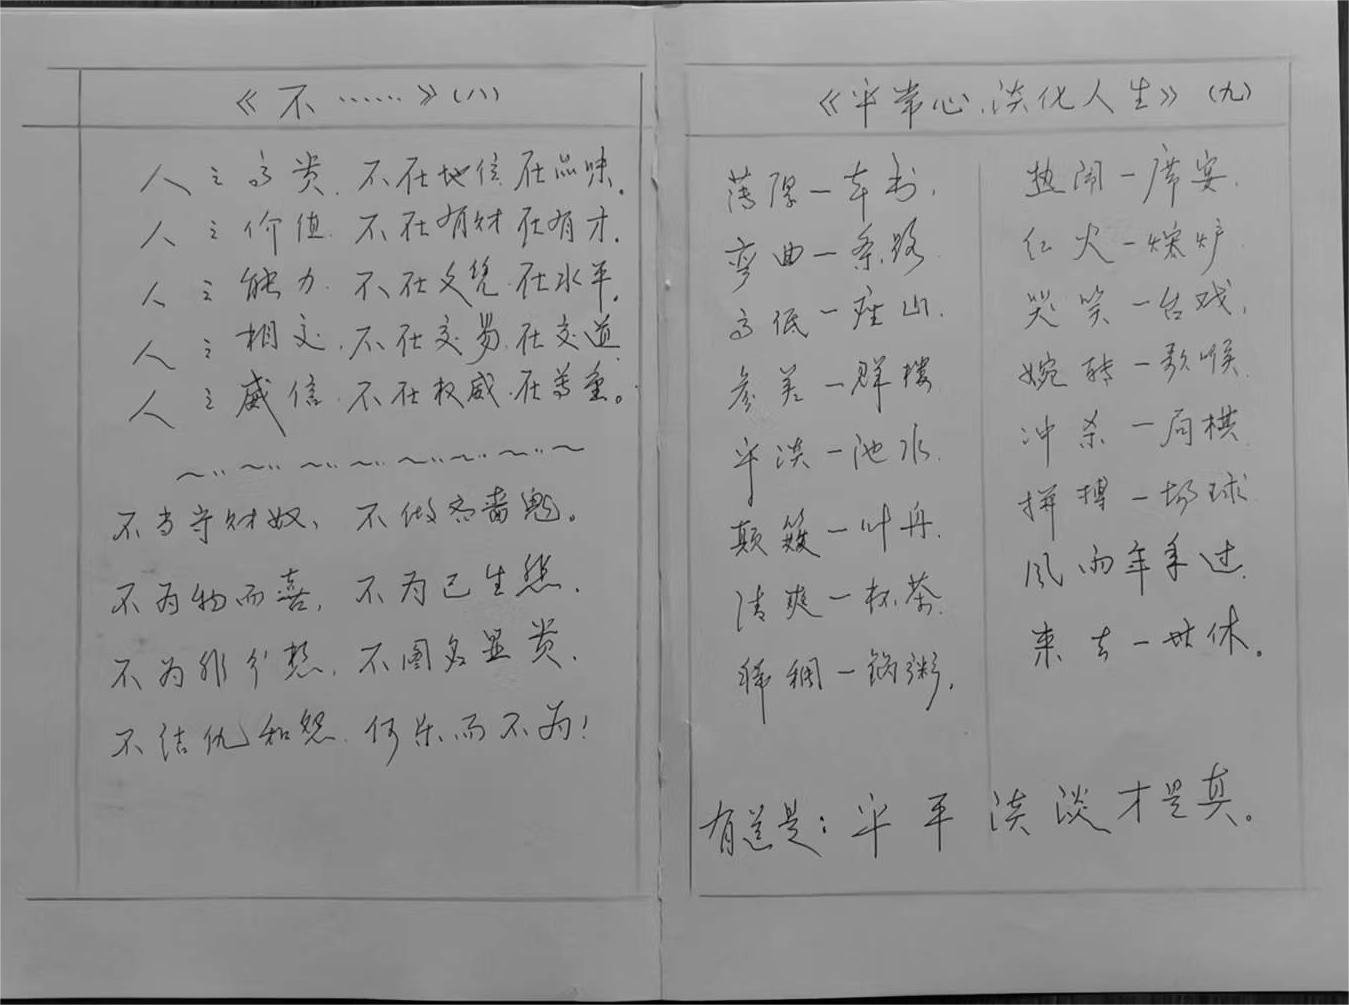 《不……》（八）
人之高贵.不在地位在品味。
人之价值.不在有财在有才.
人之能力.不在文凭.在水平.
人之相交.不在交易.在交道.
人之威信.不在权威.在尊重。
不当守财奴、不做吝啬鬼。
不为物而喜,不为己生愁.
不为非分想.不图名显贵.
不结仇和怨.何乐而不为!
《平常心.淡化人生》（九）
薄厚一本书.
弯曲一条路
高低一座山.
参差一群楼
平淡一池水.
颠簸一叶舟.
清爽一杯茶.
稀稠一锅粥.
热闹一席宴.
红火一熔炉.
哭笑一台戏.
婉转一歌喉.
冲杀一局棋
拼搏一场球.
风雨年年过.
来去一世休。
有道是:平平淡淡才是真。